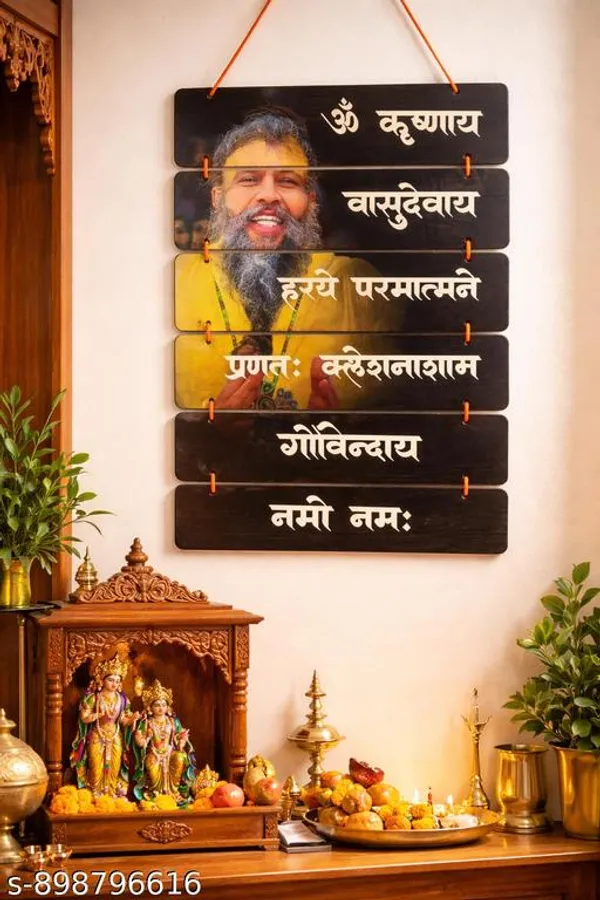 ॐ कृष्णाय
वासुदेवाय
हरये परमात्मने
प्रणतः क्लेशनाशाम
गोविन्दाय
नमो नमः
s-898796616